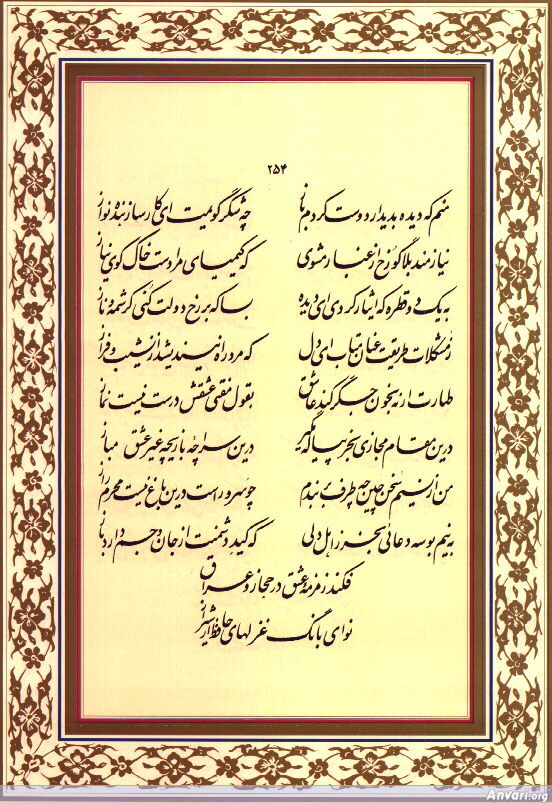 ۲۵۴
منم که دیده بدیدار دوست کردم باز چه شکر گویمت ای کارساز بنده نواز
نیازمند بلا گو رخ از غبار مشوی که کیمیای مرادست خاک کوی نیاز
به یک دو قطره که ایثار کردی ای دیده بسا که بر رخ دولت کنی کرشمهٔ ناز
ز مشکلات طریقت عنان متاب ای دل که مرد راه نیندیشد از نشیب و فراز
طهارت ار نه بخون جگر کند عاشق بقول مفتی عشقش درست نیست نماز
درین مقام مجازی بجز پیاله مگیر درین سراچه بازیچه غیر عشق مباز
من از نسیم سخن چین چه طرف بربندم چو سرو راست درین باغ نیست محرم راز
به نیم بوسه دعائی بخر ز اهل دلی که کید دشمنت از جان و جسم دارد باز
فکند زمزمهٔ عشق در حجاز و عراق
نوای بانگ غزلهای حافظ از شیراز
Anvari.org